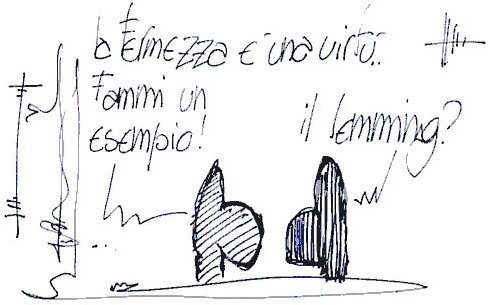 la fermezza è una virtù.
Fammi un
esempio!
il lemming?
...